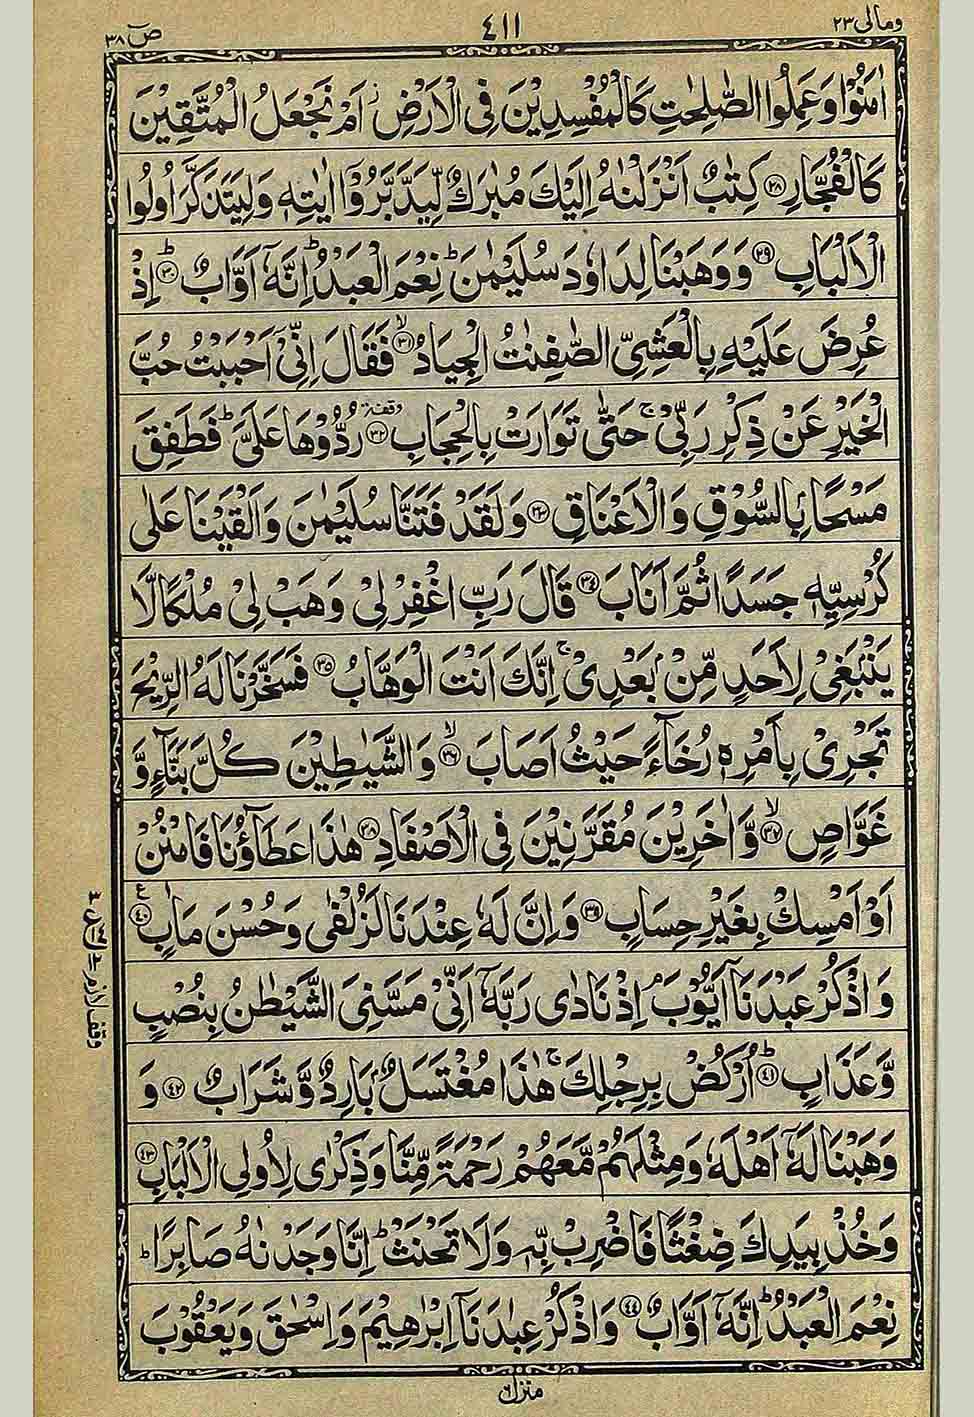 ومالی ٢٣ ٤١١ صٓ ٣٨
اٰمَنُوْا وَعَمِلُوا الصّٰلِحٰتِ كَالْمُفْسِدِيْنَ فِى الْاَرْضِ ز اَمْ نَجْعَلُ الْمُتَّقِيْنَ
كَالْفُجَّارِ ﴿٢٨﴾ كِتٰبٌ اَنْزَلْنٰهُ اِلَيْكَ مُبٰرَكٌ لِّيَدَّبَّرُوْۤا اٰيٰتِهٖ وَلِيَتَذَكَّرَ اُولُوا
الْاَلْبَابِ ﴿٢٩﴾ وَوَهَبْنَا لِدَاوٗدَ سُلَيْمٰنَ ؕ نِعْمَ الْعَبْدُ ؕ اِنَّهٗۤ اَوَّابٌ ﴿٣٠﴾ؕ اِذْ
عُرِضَ عَلَيْهِ بِالْعَشِىِّ الصّٰفِنٰتُ الْجِيَادُ ﴿٣١﴾ۙ فَقَالَ اِنِّىْۤ اَحْبَبْتُ حُبَّ
الْخَيْرِ عَنْ ذِكْرِ رَبِّىْ ۚ حَتّٰى تَوَارَتْ بِالْحِجَابِ ﴿٣٢﴾ وقفة رُدُّوْهَا عَلَىَّ ؕ فَطَفِقَ
مَسْحًۢا بِالسُّوْقِ وَالْاَعْنَاقِ ﴿٣٣﴾ وَلَقَدْ فَتَنَّا سُلَيْمٰنَ وَاَلْقَيْنَا عَلٰى
كُرْسِيِّهٖ جَسَدًا ثُمَّ اَنَابَ ﴿٣٤﴾ قَالَ رَبِّ اغْفِرْ لِىْ وَهَبْ لِىْ مُلْكًا لَّا
يَنْۢبَغِىْ لِاَحَدٍ مِّنْۢ بَعْدِىْ ۚ اِنَّكَ اَنْتَ الْوَهَّابُ ﴿٣٥﴾ فَسَخَّرْنَا لَهُ الرِّيْحَ
تَجْرِىْ بِاَمْرِهٖ رُخَآءً حَيْثُ اَصَابَ ﴿٣٦﴾ۙ وَالشَّيٰطِيْنَ كُلَّ بَنَّآءٍ وَّ
غَوَّاصٍ ﴿٣٧﴾ۙ وَّاٰخَرِيْنَ مُقَرَّنِيْنَ فِى الْاَصْفَادِ ﴿٣٨﴾ هٰذَا عَطَآؤُنَا فَامْنُنْ
اَوْ اَمْسِكْ بِغَيْرِ حِسَابٍ ﴿٣٩﴾ وَاِنَّ لَهٗ عِنْدَنَا لَزُلْفٰى وَحُسْنَ مَاٰبٍ ﴿٤٠﴾ ع
وَاذْكُرْ عَبْدَنَاۤ اَيُّوْبَ ۘ اِذْ نَادٰى رَبَّهٗۤ اَنِّىْ مَسَّنِىَ الشَّيْطٰنُ بِنُصْبٍ
وَّعَذَابٍ ﴿٤١﴾ؕ اُرْكُضْ بِرِجْلِكَ ۚ هٰذَا مُغْتَسَلٌۢ بَارِدٌ وَّشَرَابٌ ﴿٤٢﴾ وَ
وَهَبْنَا لَهٗۤ اَهْلَهٗ وَمِثْلَهُمْ مَّعَهُمْ رَحْمَةً مِّنَّا وَذِكْرٰى لِاُولِى الْاَلْبَابِ ﴿٤٣﴾
وَخُذْ بِيَدِكَ ضِغْثًا فَاضْرِبْ بِّهٖ وَلَا تَحْنَثْ ؕ اِنَّا وَجَدْنٰهُ صَابِرًا ؕ
نِعْمَ الْعَبْدُ ؕ اِنَّهٗۤ اَوَّابٌ ﴿٤٤﴾ وَاذْكُرْ عِبٰدَنَاۤ اِبْرٰهِيْمَ وَاِسْحٰقَ وَيَعْقُوْبَ
منزل ٦